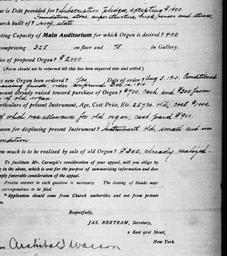 is Debt provided for? Subscription pledges, excepting $400
Foundation stone, superstructure brick,
church built of? roof, slate
ting Capacity of Main Auditorium for which Organ is desired? 400
omprising 325 on floor and 75 in Gallery.
ce of proposed Organ? $2000
(Form should not be returned till this has been enquired into and settled.)
new Organ been ordered? Yes Date of order? Aug 5, 1910. Conditioned
unt already raised toward purchase of Organ? $700. cash and $300 from
of old organ
articulars of present Instrument, Age, Cost Price, Etc. 25 yrs. old, cost $1000
of which was allowance for old organ, cash paid $900.
eason for displacing present Instrument? Instrument old, small and
ondition
ow much is to be realized by sale of old Organ? $300 already realized
To facilitate Mr. Carnegie's consideration of your appeal, will you oblige by
in the above, which is sent for the purpose of summarizing information and does
ply favorable consideration of the appeal.
Precise answer to each question is necessary. The testing of Hands may
correspondence to be filed.
* Application should come from Church authorities and not from private
Respectfully,
JAS. BERTRAM, Secretary,
2 East 91st Street,
New York.
Archibald Wasson